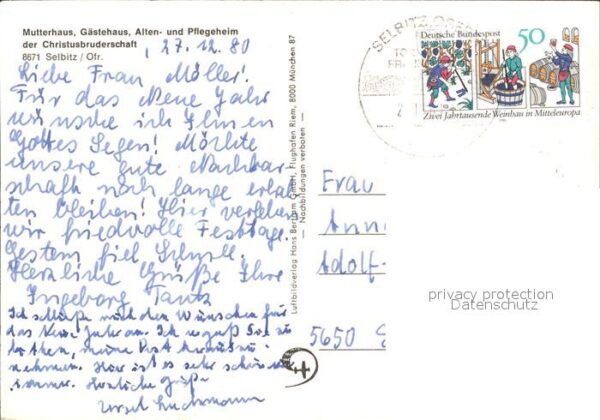 Mutterhaus, Gästehaus, Alten- und Pflegeheim
der Christusbruderschaft
8671 Selbitz / Ofr.
27.12.80
Liebe Frau Möller!
Für das Neue Jahr
wünsche ich Ihnen
Gottes Segen! Möchte
unsere gute Nachbar-
schaft noch lange erhal-
ten bleiben! Hier verleben
wir friedvolle Festtage.
Gestern fiel Schnee.
Herzliche Grüße Ihre
Ingeborg Tautz
Ich schließe mich den Wünschen für
das Neue Jahr an. Ich
meine Post
nehmen. Hier ist es sehr schön wie
immer. Herzliche Grüße
Luftbildverlag Hans Bertram GmbH, Flughafen Riem, 8000 München 87
— Nachbildungen verboten —
SELBITZ, OBERFR
Deutsche Bundespost
50
Zwei Jahrtausende Weinbau in Mitteleuropa
Frau
Ann
Adolf-
5650
privacy protection
Datenschutz